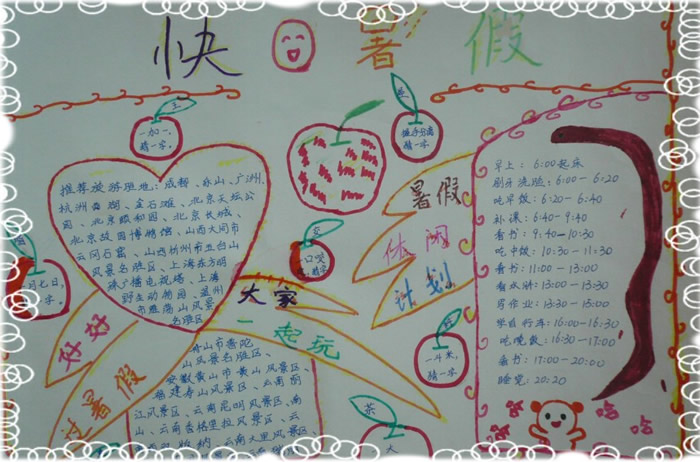 快 暑 假
王
一加一，
猜一字。
是
推荐旅游胜地：成都、乐山、广洲、
杭州西湖、金石滩、北京天坛公
园、北京颐和园、北京长城、
北京故园博物馆、山西大同市
云冈石窟、山西忻州市五台山
风景名胜区、上海东方明
珠广播电视塔、上海
野生动物园、温州
市雁荡山风景
名胜区
舟山市普陀
山风景名胜区、
安徽黄山市黄山风景区、
福建寿山风景区、云南丽
江风景区、云南昆明风景区、南
山、云南香格里拉风景区、云
好好
过暑假
大家
一起玩
暑假
休闲
计划
一斗米，
猜一字
茶
大
早上：6:00起床
刷牙洗脸：6:00-6:20
吃早散：6:20-6:40
补课：6:40-9:40
看书：9:40-10:30
吃中饭：10:30-11:30
看书：11:00-13:00
看水浒：13:00-13:00
写作业：13:30-15:00
学自行车：16:00-16:30
吃晚散：16:30-17:00
看书：17:00-20:00
睡觉：20:20
哈 哈